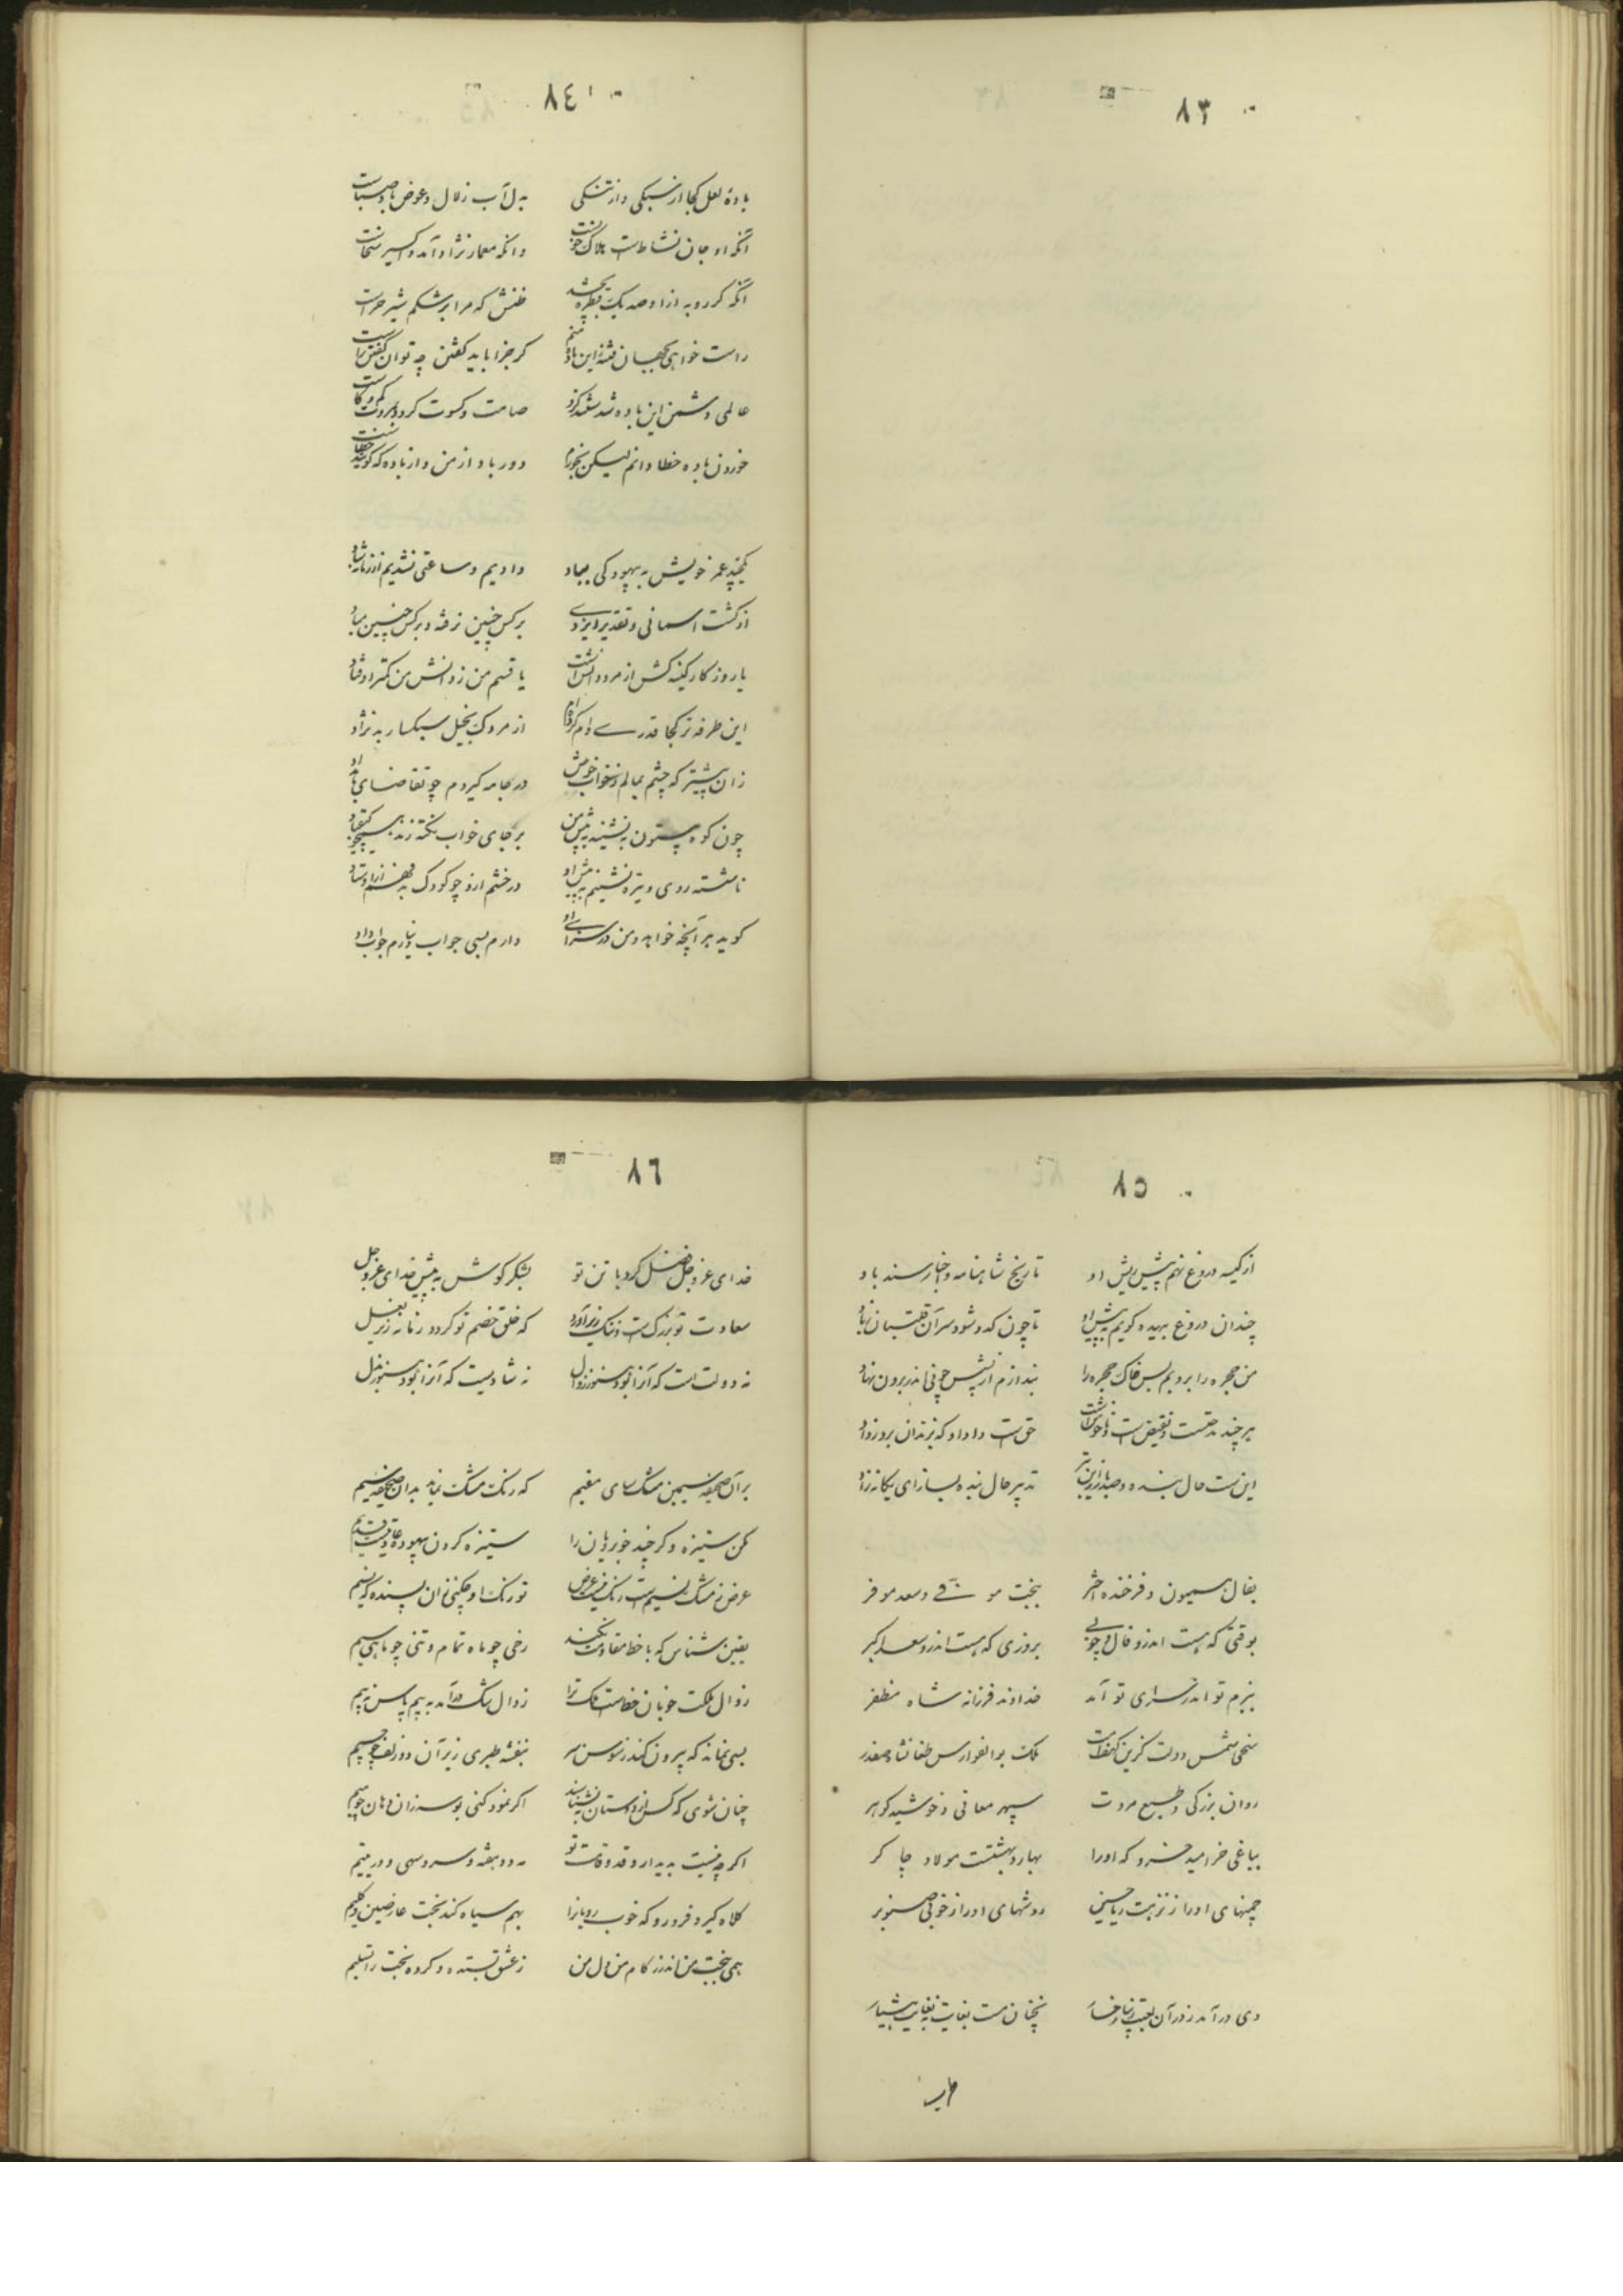 ٨٣
٨٤
بادهٔ لعل کجا از سبکی و از تنکی بدل آب زلال و عوض باد صباست
آنکه او جان نشاطست هلاک حزنست وانکه معمار نژاد آمد و اکسیر سخاست
آنکه کر روبه ازو صد یک قطره بچشد ظنش که مرا بر شکم شیر چراست
راست خواهی بجهان فتنهٔ این باده منم کر جزا باید کفتن چه توان کفتن راست
عالمی دشمن این باده شدستند کزو صامت و کسوت کرد و مروت کم و کاست
خوردن باده خطا دانم لیکن بخورم دور باد از من و از باده که کویند خطاست
یکچند عمر خویش به بیهودکی بباد دادیم و ساعتی نشدیم از زمانه شاد
از کشت اسمانی و تقدیر ایزدی بر کس چنین نرفته و بر کس چنین مباد
یا روزکار کینه کش از مرد دانش است یا قسم من ز دانش من کمتر اوفتاد
این طرفه تر کجا قدری وام کرده‌ام از مردک بخیل سبکسار بد نژاد
زان پیشتر که چشم بمالم ز خواب خوش در جامه کیردم چو تقاضای بامداد
چون کوه بیستون بنشیند به پیش من بر جای خواب نکته زند همچو کیقباد
ناشسته روی و تیره نشینم به پیش او در خشم ازو چو کودک بد فهم از اوستاد
کوید هر آنچه خواهد و من در سزای او دارم بسی جواب و نیارم جواب داد
٨٥
از کیسه دروغ نهم پیش ریش او تاریخ شاهنامه و اخبار سندباد
چندان دروغ بیهده کویم به پیش او تا چون کدو شود سر آن قلتبان ز باد
من حجره را بروبم پس خاک حجره را بندازم از پسش چو نی اندر برون نهاد
هر چند نه حقست و نقیض است و ناخوش است حق است دادِ او که بزندان برد زداد
اینست حال بنده و صد بار ازین بتر تدبیر حال بنده بساز ای یکانه زاد
بفال همیون و فرخنده اختر ببخت موفق و سعد موفر
بوقتی که هست اندرو فال و خوبی بروزی که هست اندرو سعد اکبر
ببزم تو اندر سرای تو آمد خداوند فرزانه شاه مظفر
سخی شمس دولت کزین کهف امت ملک بوالفوارس طغانشاه صفدر
روان بزرکی و طبع مروت سپهر معانی و خورشید کوهر
بباغی خرامید خسرو که اورا بهار و بهشتست مولا و چاکر
چمنهای اورا ز نزهت ریاحین روشهای اورا ز خوبی صنوبر
دی در آمد ز در آن لعبت زیبا رخسار نچنان مست بغایت نه بغایت هشیار
٨٦
خدای عز و جل فضل کرد با تن تو بشکر کوش به پیش خدای عز و جل
سعادت تو بزرکست و نیک زیر آورد که خلق خصم تو کردد زمانه زیر بغل
نه دولت است که آنرا بود هنوز زوال نه شادیست که آنرا بود هنوز خلل
بر آن صحیفه سیمین مشک سای مقیم که رنک مشک نماید بدان صحیفه سیم
مکن ستیزه و کر چند خوبرویان را ستیزه کردن بیهوده عادتیست قدیم
عرض ز مشک نسیم است رنک نیست غرض تو رنک او چکنی زان پسنده کن نسیم
یقین شناس که با خط مقاومت نکند رخی چو ماه تمام و تنی چو ماهی سیم
زوال ملکت خوبان خط است ملک ترا زوال ملک در آمد به بیم باش به بیم
بسی نماند که بیرون کند ز سوسن سر بنفشه طبری زیر آن دو زلف چو جیم
چنان شوی که کس از دوستان نشناسند اکر نمود کنی بوسه زان دهان چو میم
اکر چه نیست بدیدار و قد و قامت تو نه در بنفشه و سرو سهی و در یتیم
کلاه کیرد فرو رو که خوب رویانرا بهم سیاه کند بخت عارضین و کلیم
همی بخت من اندر ز کام من دل من ز عشق بستده و کرده بخت را تسلیم